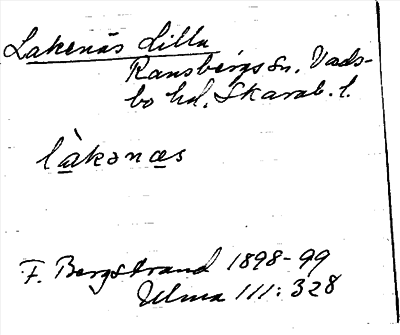 Lakenäs Lilla
Ransbergs sn. Vads-
bo hd. Skarab. l.
làkənæs
F. Bergstrand 1898-99
Ulma 111:328